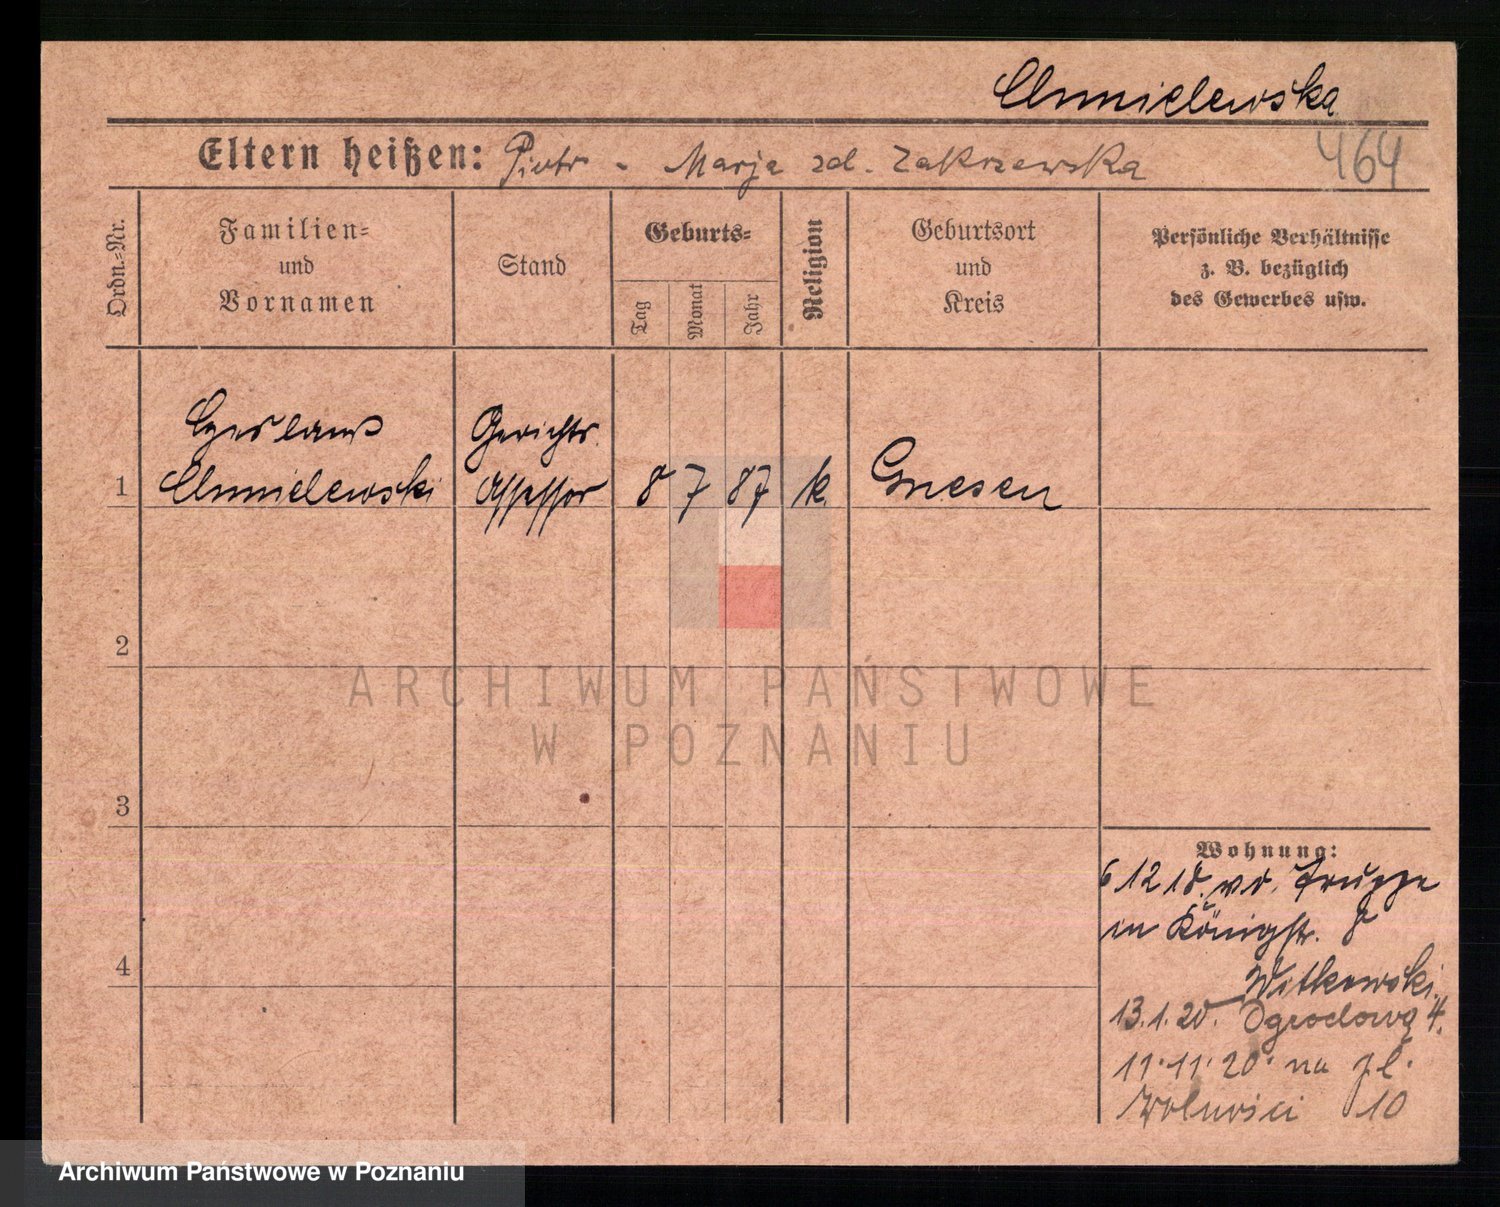 Chmielewska
Eltern heißen: Piotr - Marja zd. Zakrzewska
464
Ordn.-Nr.
Familien-
und
Vornamen
Stand
Geburts-
Tag
Monat
Jahr
Religion
Geburtsort
und
Kreis
Persönliche Verhältnisse
z. B. bezüglich
des Gewerbes usw.
Czeslaus
Gerichts.
1 Chmielewski Assessor 8 7 87 k. Gnesen
2
ARCHIWUM PAŃSTWOWE
W POZNANIU
3
4
Wohnung:
6 12 18. v. d. Truppe
in Königstr. 8
Witkowski.
13.1.20. Ogrodowa 4.
11.11.20. na pl.
Wolności 10
Archiwum Państwowe w Poznaniu